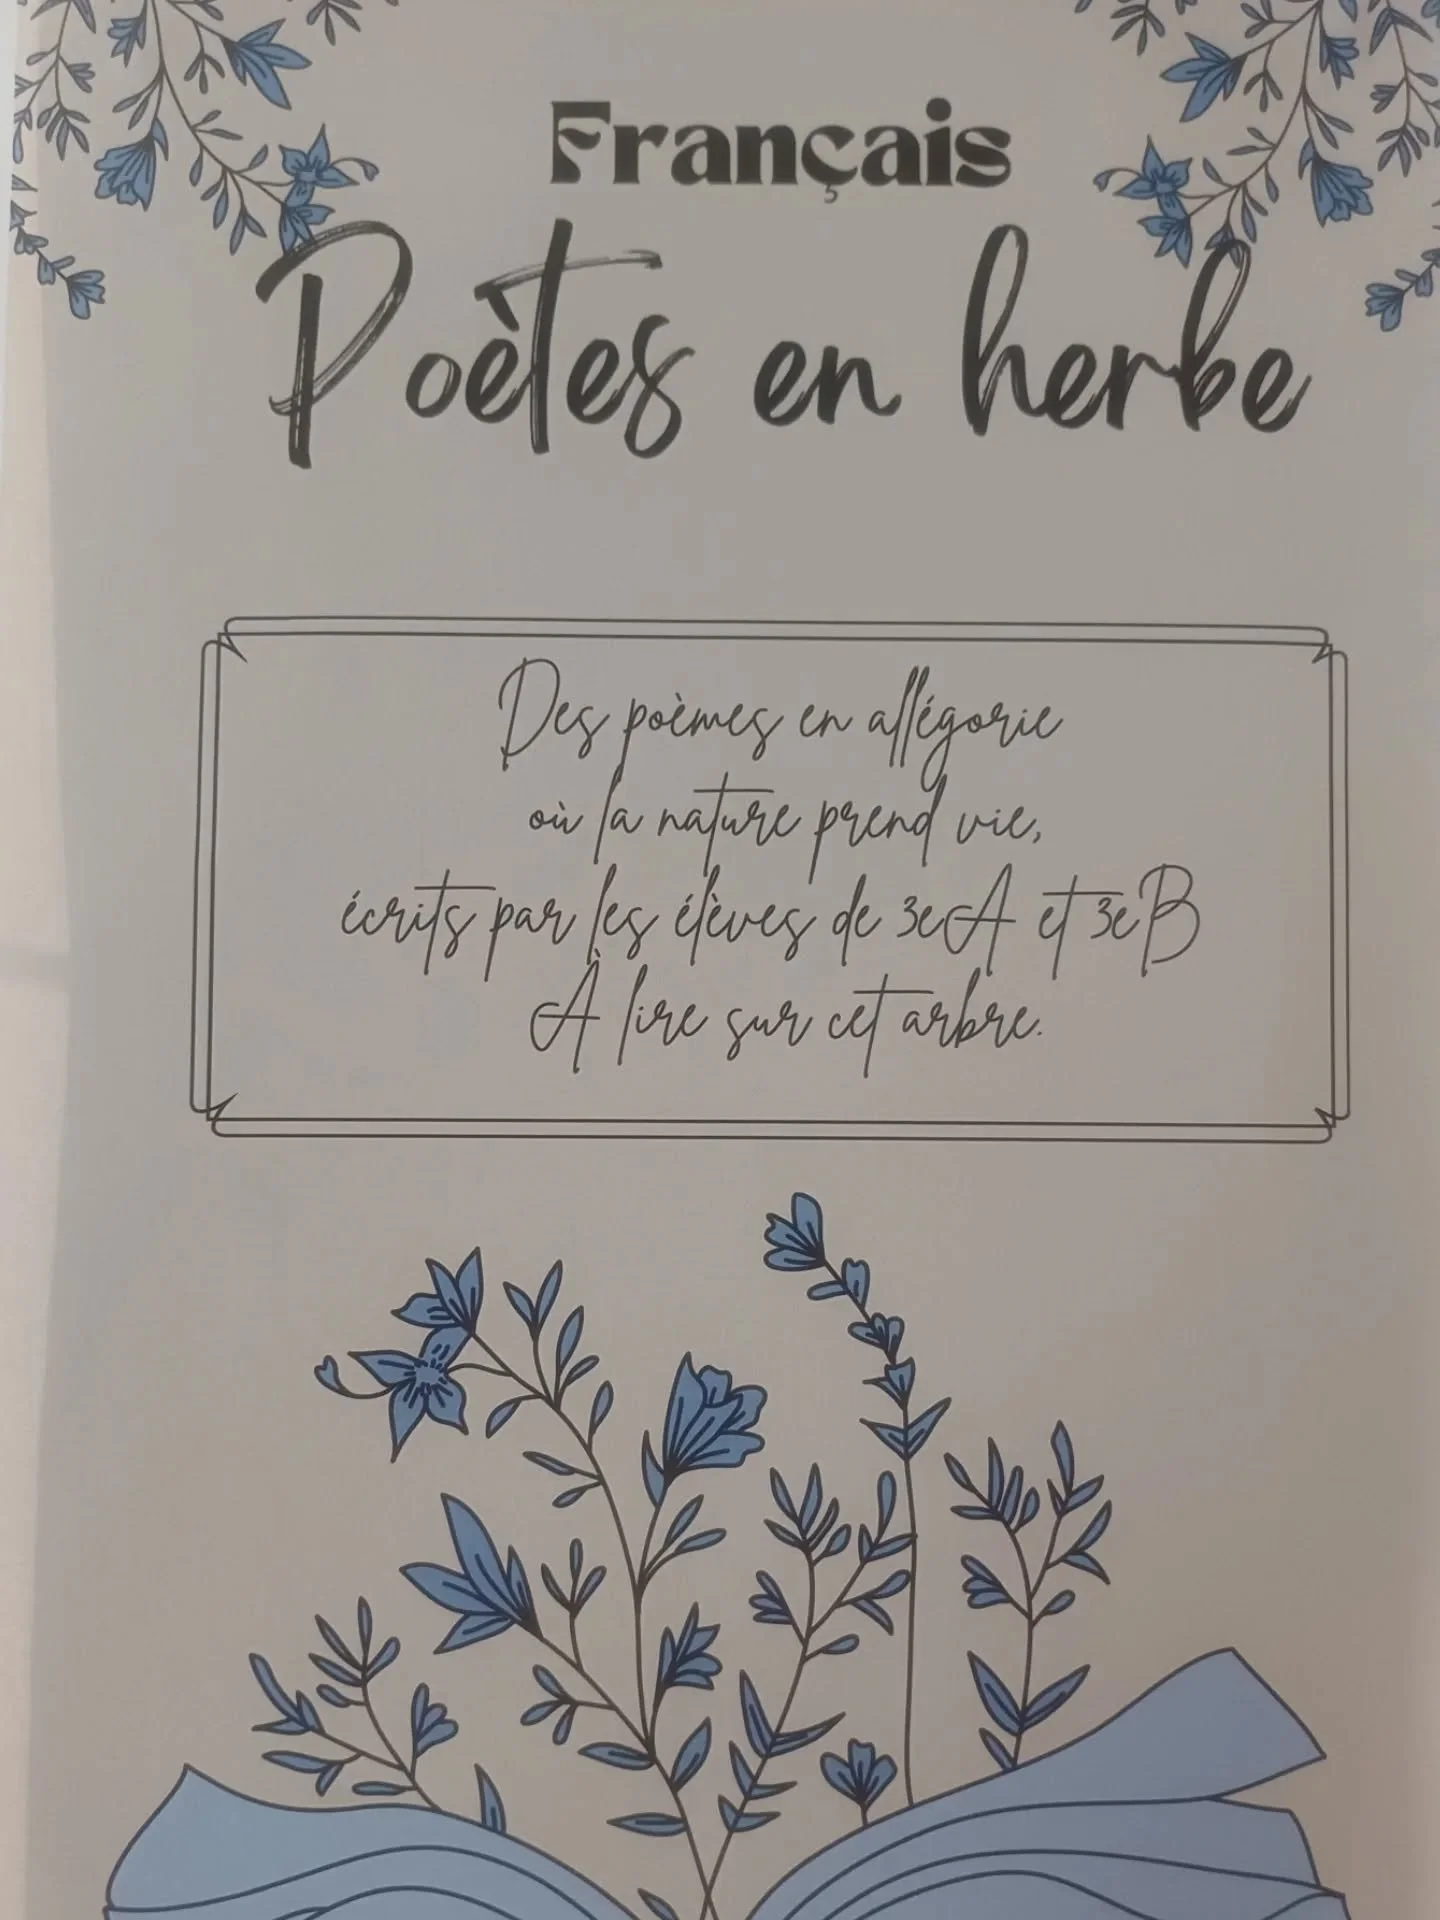 Français
Poètes en herbe
Des poèmes en allégorie
où la nature prend vie,
écrits par les élèves de 3eA et 3eB
À lire sur cet arbre.